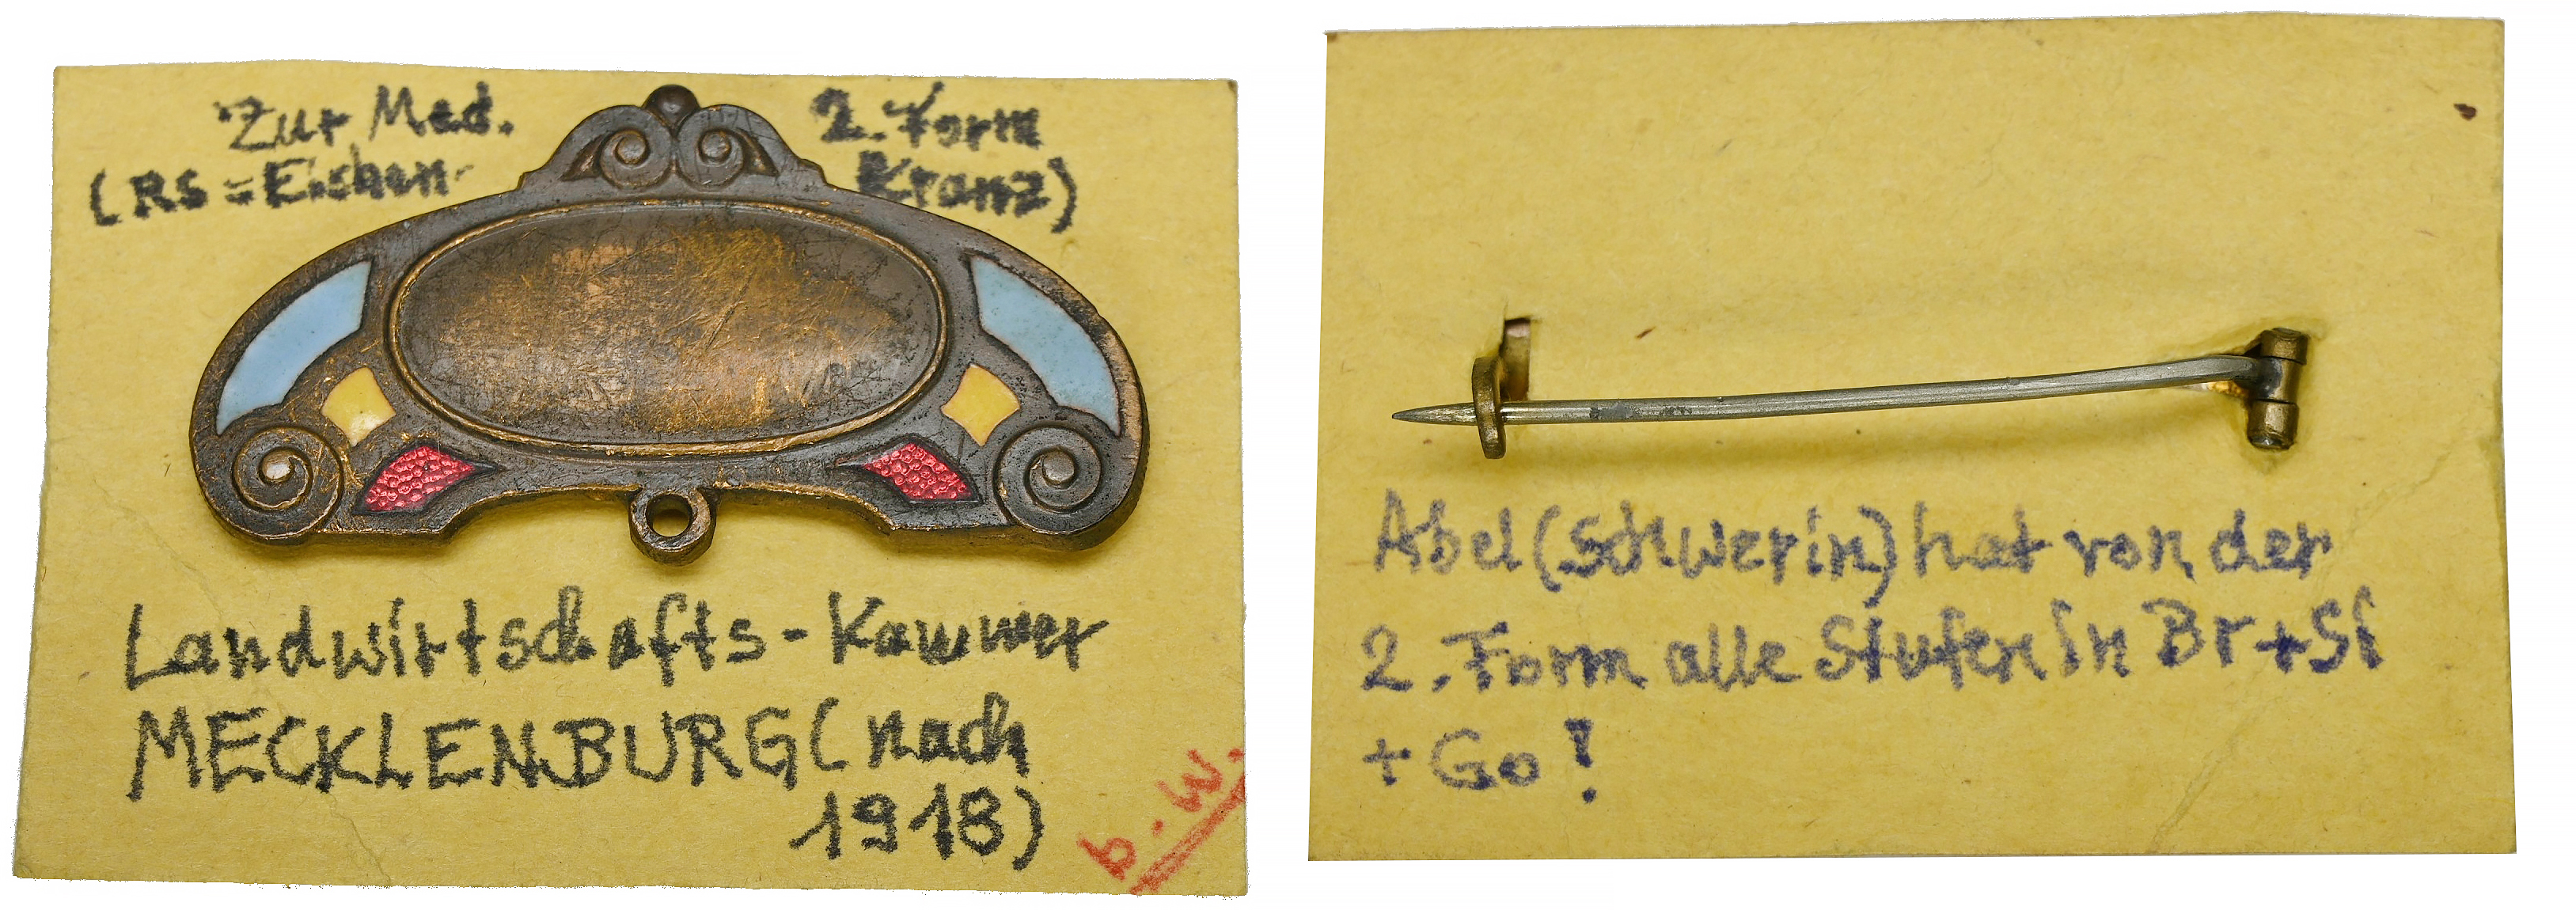 Zur Med. 2. Form
(RS = Eichen- Kranz)
Landwirtschafts-Kammer
MECKLENBURG (nach
1918)
b.W.
Abel (Schwerin) hat von der
2. Form alle Stufen in Br + Si
+ Go!